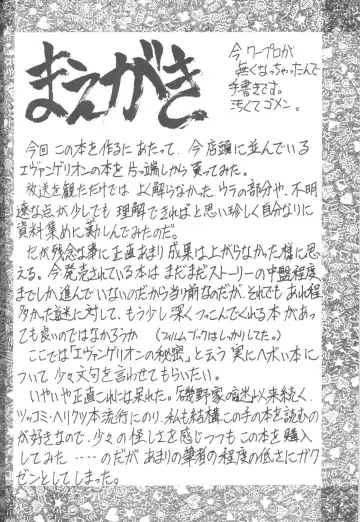 まえがき
今ワープロが
無くなっちゃったんで
手書きです。
汚くてゴメン。
今回この本を作るにあたって、今店頭に並んでいる
エヴァンゲリオンの本を片っ端しから買ってみた。
放送を観ただけでは よく解らなかった、ウラの部分や、不明
遼な点が少しでも 理解できればと思い珍しく自分なりに
資料集めに勤しんでみたのだ。
だが残念な事に正直あまり成果は上がらなかった様に思
える。今発売されている本は まだまだストーリーの中盤程度
までしか進んでいないのだから当り前なのだが、それでも あれ程
多かった謎に対して、もう少し深く つっこんでくれる本があって
も良いのではなかろうか (フィルムブックはしっかりしてた。)
ここでは「エヴァンゲリオンの秘密」と云う 実にヘボい本に
ついて 少々文句を言わせてもらいたい。
いやいや正直これには呆れた。磯野家の謎以来続く、
ツッコミ・ヘリクツ本流行にのり、私も結構この手の本を読むの
が好きなので、少々の怪しさを感じつつも この本を購入
してみた‥‥のだが あまりの筆者の程度の低さにガク
ゼンとしてしまった。